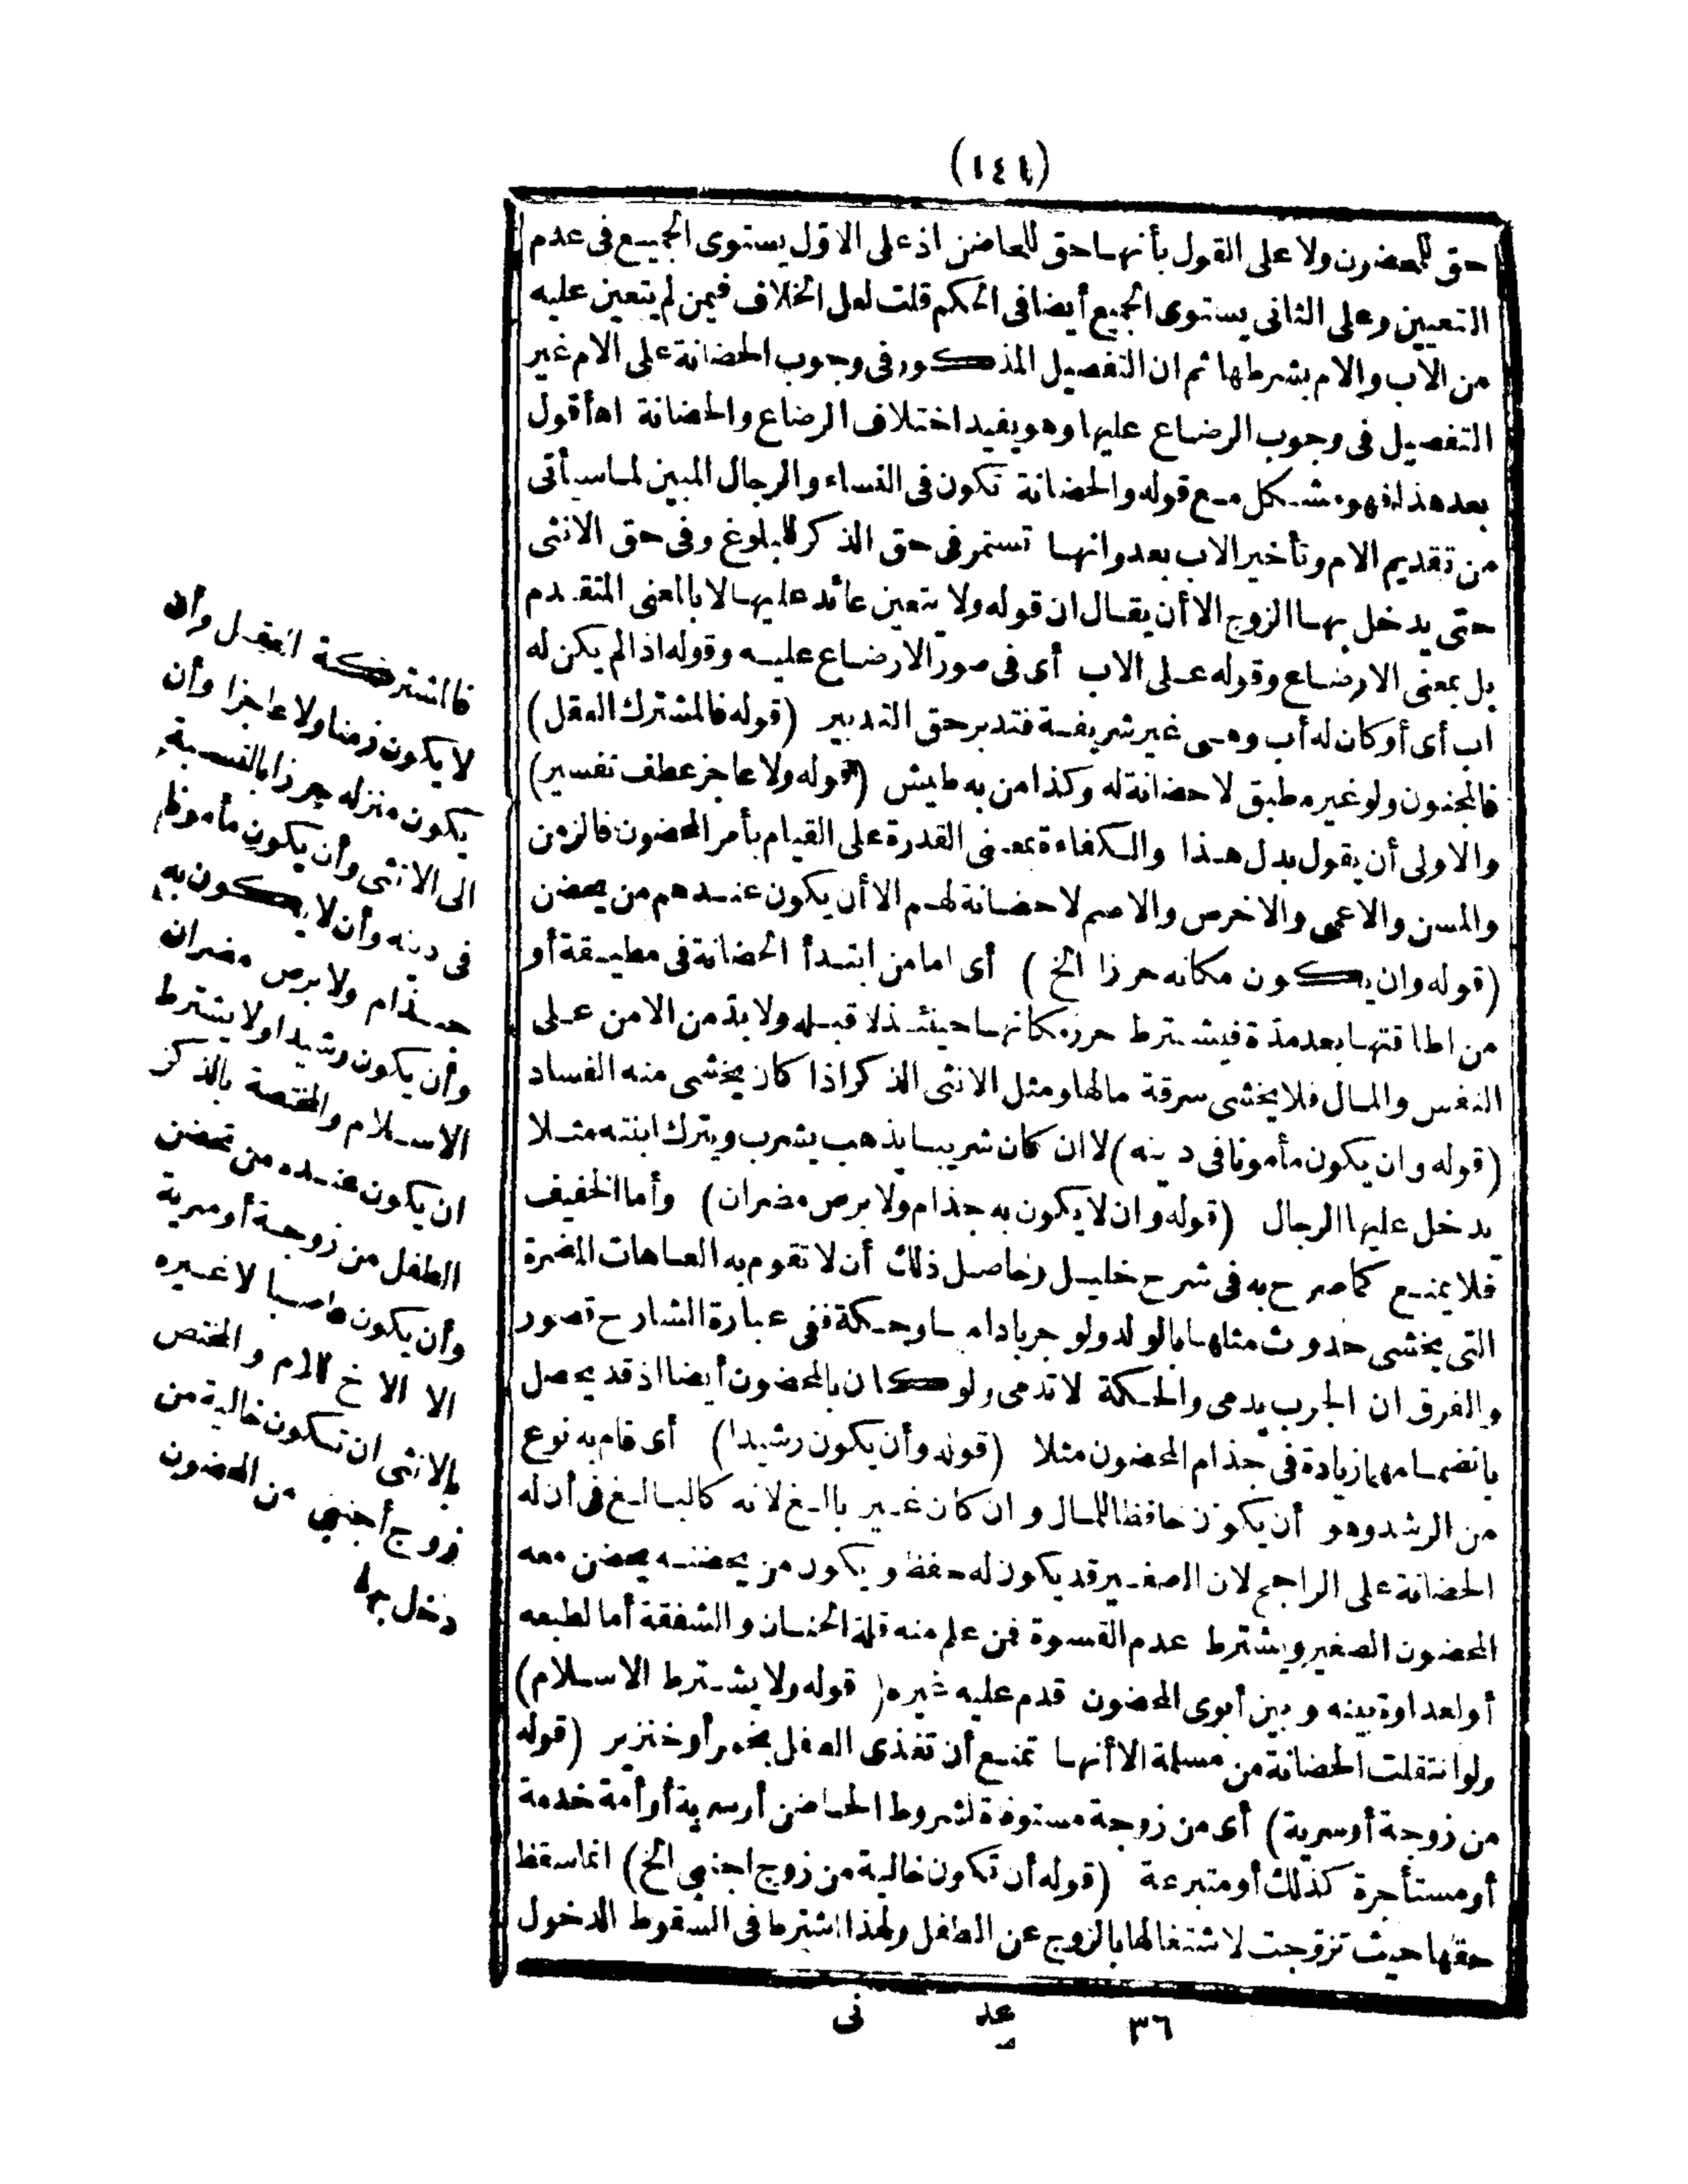 (١٤١)
حق للمحضون ولا على القول بأنها حق للحاضن اذ على الاول يستوى الجميع فى عدم
التعيين وعلى الثانى يستوى الجميع أيضا فى الحكم قلت لعل الخلاف فيمن لم يتعين عليه
من الاب والام بشرطها ثم ان التفصيل المذكور فى وجوب الحضانة على الام غير
التفصيل فى وجوب الرضاع عليها وهو يفيد اختلاف الرضاع والحضانة اه أقول
بعد هذا فهو مشكل مع قوله والحضانة تكون فى النساء والرجال المبين لما سيأتى
من تقديم الام وتأخير الاب بعد وانها تستمر فى حق الذكر للبلوغ وفى حق الانثى
حتى يدخل بها الزوج الا أن يقال ان قوله ولا يتعين عائد عليها لا بالمعنى المتقدم
بل بمعنى الارضاع وقوله على الاب أى فى صور الارضاع عليه وقوله اذا لم يكن له
اب أى أو كان له أب وهى غير شريفة فتدبر حق التدبير (قوله فالمشترك العقل)
فالمجنون ولو غير مطبق لا حضانة له وكذا من به طيش (قوله ولا عاجز عطف تفسير)
والاولى أن يقول بدل هذا والكفاءة بمعنى القدرة على القيام بأمر المحضون فالزمن
والمسن والاعمى والاخرس والاصم لا حضانة لهم الا أن يكون عندهم من يحضن
(قوله وان يكون مكانه حرزا الخ) أى امامن ابتدأ الحضانة فى مطيقة أو
من اطاقتها بعد مدة فيشترط حرز مكانها حينئذ لا قبله ولا بد من الامن على
النفس والمال فلا يخشى سرقة مالها ومثل الانثى الذكر اذا كان يخشى منه الفساد
(قوله وان يكون مأمونا فى دينه) لا ان كان شريبا يذهب يشرب ويترك ابنته مثلا
يدخل عليها الرجال (قوله وان لا يكون به جذام ولا برص مضران) وأما الخفيف
فلا يمنع كما صرح به فى شرح خليل وحاصل ذلك أن لا تقوم به العاهات المضرة
التى يخشى حدوث مثلها بالولد ولو جربا داميا وحكة ففى عبارة الشارح قصور
والفرق ان الجرب يدمى والحكة لا تدمى ولو كان بالمحضون أيضا اذ قد يحصل
بانضمامهما زيادة فى جذام المحضون مثلا (قوله وأن يكون رشيدا) أى قام به نوع
من الرشد وهو أن يكون حافظا للمال وان كان غير بالغ لانه كالبالغ فى أن له
الحضانة على الراجح لان الصغير قد يكون له حفظ ويكون من يحضنه يحضن معه
المحضون الصغير ويشترط عدم القسوة فمن علم منه قلة الحنان والشفقة أما لطبعه
أو لعداوة بينه وبين أبوى المحضون قدم عليه غيره (قوله ولا يشترط الاسلام)
ولو انتقلت الحضانة من مسلمة الا أنها تمنع أن تغذى الطفل بخمر أو خنزير (قوله
من زوجة أو سرية) أى من زوجة مستوفاة لشروط الحاضن أو سرية أو أمة خدمة
أو مستأجرة كذلك أو متبرعة (قوله أن تكون خالية من زوج اجنبى الخ) انما سقط
حقها حيث تزوجت لاشتغالها بالزوج عن الطفل ولهذا اشترطا فى السقوط الدخول
٣٦ عد نى
فالمشتركة العقل وأن
لا يكون زمنا ولا عاجزا وأن
يكون منزله حرزا بالنسبة
الى الانثى وأن يكون مأمونا
فى دينه وأن لا يكون به
جذام ولا برص مضران
وأن يكون رشيدا ولا يشترط
الاسلام والمختصة بالذكر
ان يكون عنده من تحضن
الطفل من زوجة أو سرية
وأن يكون عاصبا لا غيره
الا الاخ للام والمختص
بالانثى ان تكون خالية من
زوج أجنبى من المحضون
دخل بها